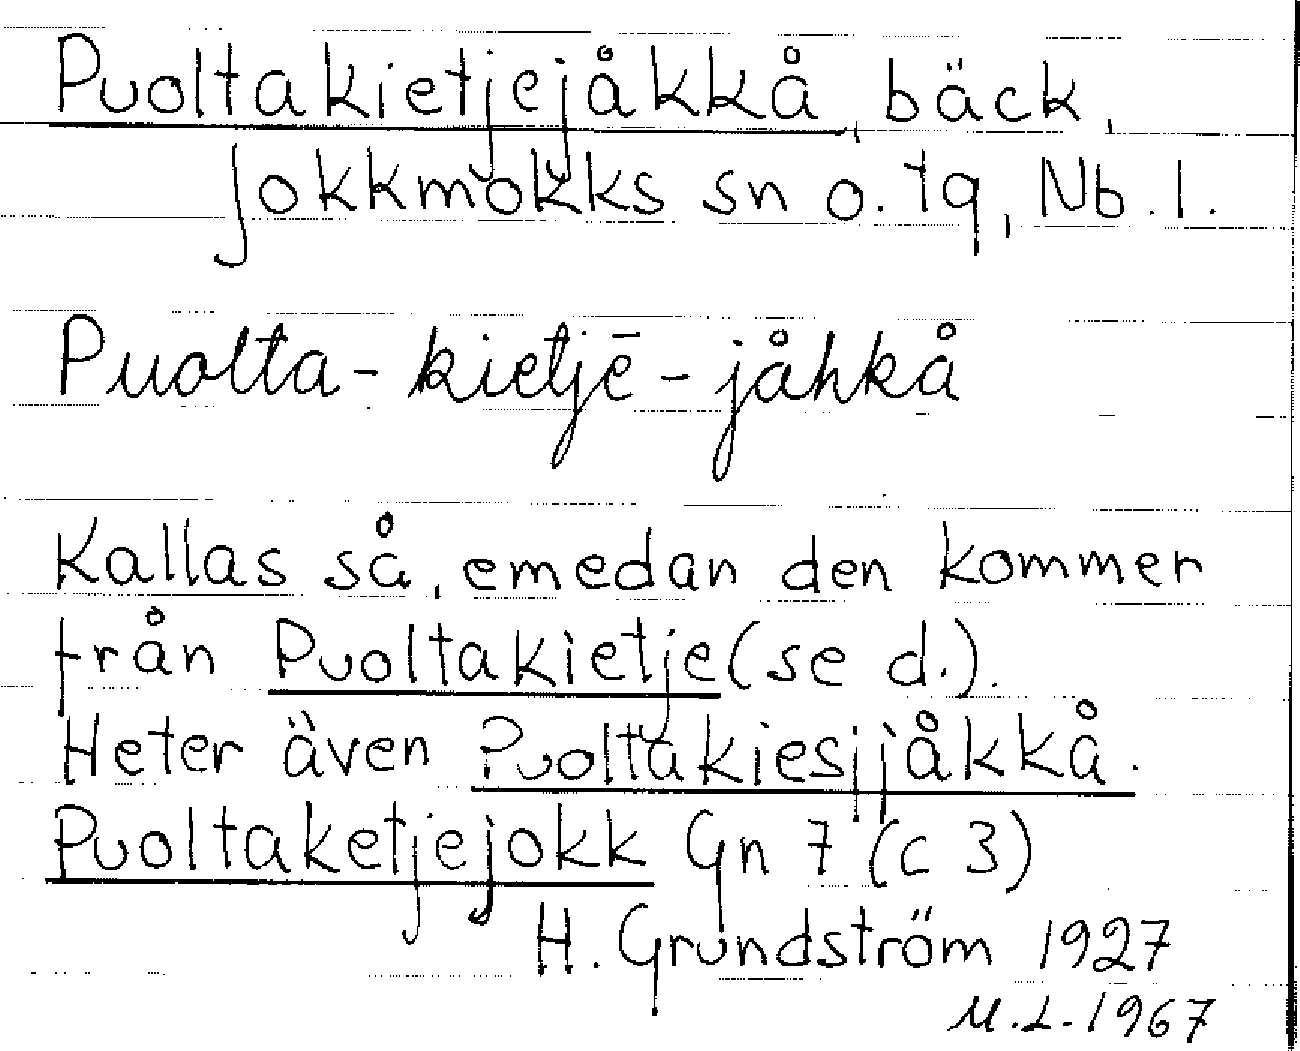 Puoltakietjejåkkå, bäck,
Jokkmokks sn o. tg, Nb. l.
Puolta-kietjē-jåhkå
Kallas så, emedan den kommer
från Puoltakietje (se d.).
Heter även Puoltakiesjjåkkå.
Puoltaketjejokk Gn 7 (c 3)
H. Grundström 1927
M.L. 1967